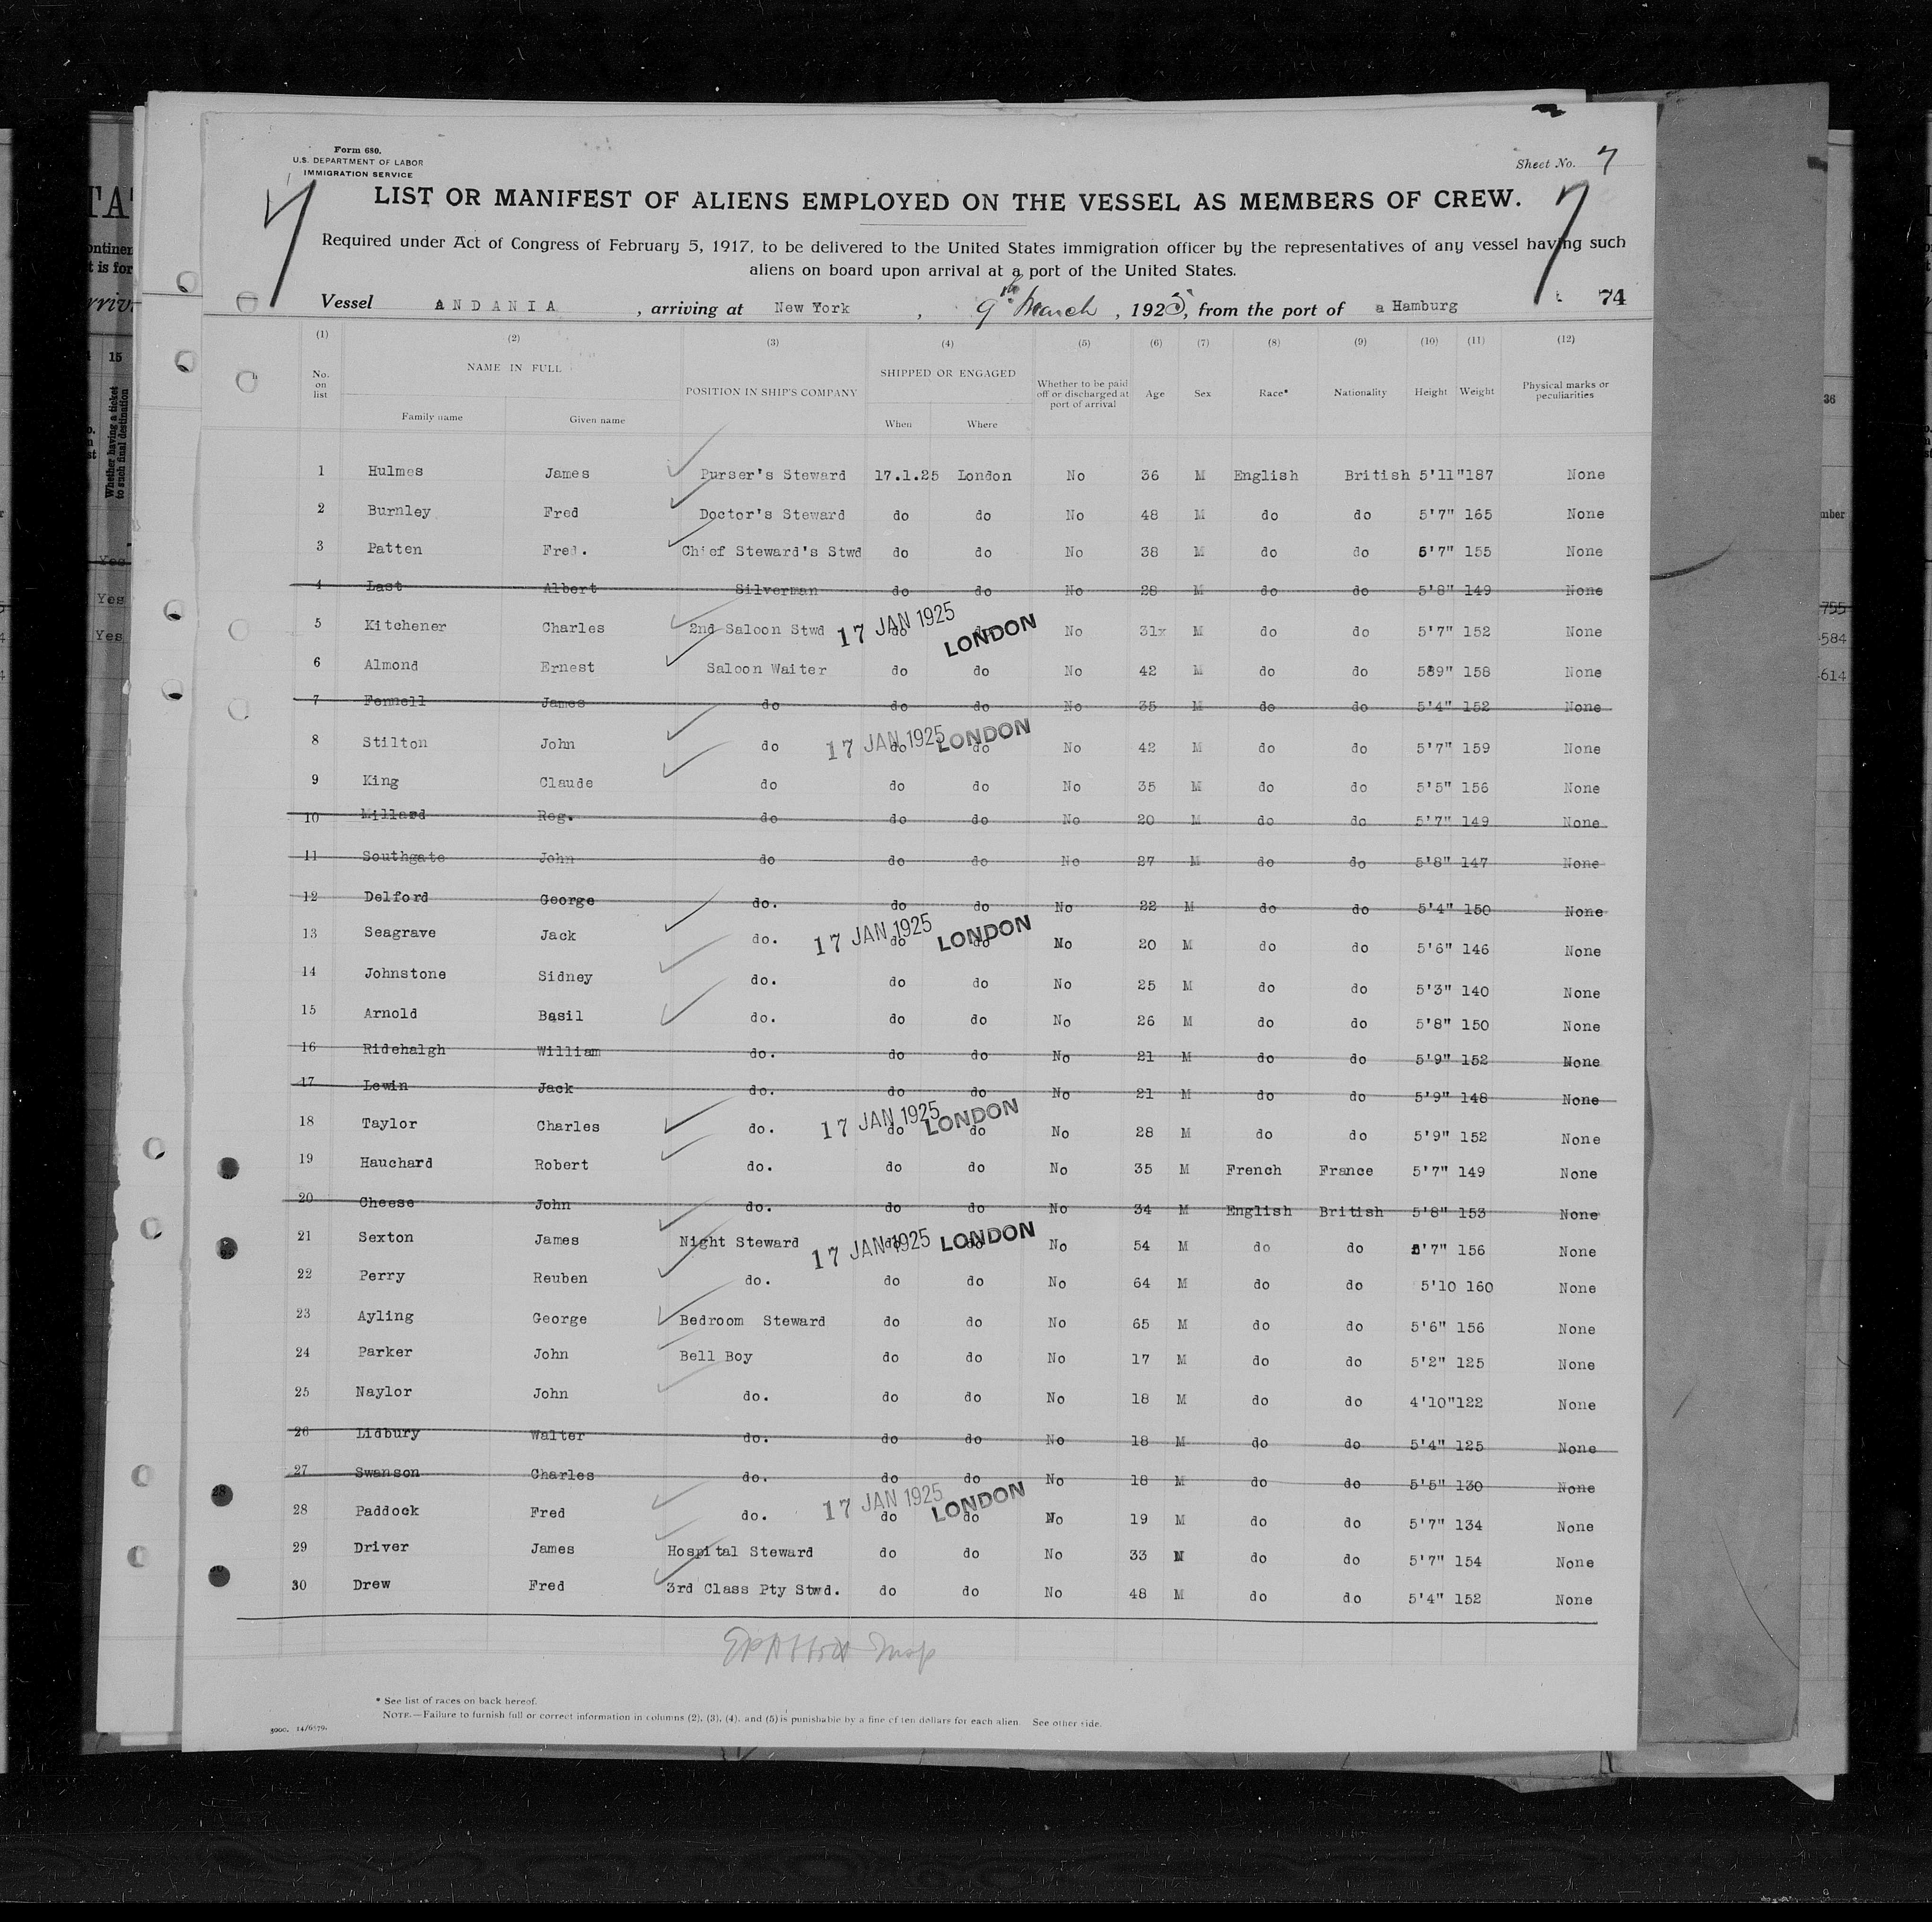 Form 680.
U.S. DEPARTMENT OF LABOR
IMMIGRATION SERVICE
Sheet No. 7
7 7
LIST OR MANIFEST OF ALIENS EMPLOYED ON THE VESSEL AS MEMBERS OF CREW.
Required under Act of Congress of February 5, 1917, to be delivered to the United States immigration officer by the representatives of any vessel having such
aliens on board upon arrival at a port of the United States.
Vessel ANDANIA, arriving at New York, 9th March, 1925, from the port of a Hamburg 74
(1) (2) (3) (4) (5) (6) (7) (8) (9) (10) (11) (12)
No. on list NAME IN FULL POSITION IN SHIP'S COMPANY SHIPPED OR ENGAGED Whether to be paid off or discharged at port of arrival Age Sex Race* Nationality Height Weight Physical marks or peculiarities
Family name Given name When Where
1 Hulmes James Purser's Steward 17.1.25 London No 36 M English British 5'11" 187 None
2 Burnley Fred Doctor's Steward do do No 48 M do do 5'7" 165 None
3 Patten Fred. Chief Steward's Stwd do do No 38 M do do 5'7" 155 None
4 Last Albert Silverman do do No 28 M do do 5'8" 149 None
5 Kitchener Charles 2nd Saloon Stwd do do 17 JAN 1925 LONDON No 31x M do do 5'7" 152 None
6 Almond Ernest Saloon Waiter do do No 42 M do do 589" 158 None
7 Fennell James do do do No 35 M do do 5'4" 152 None
8 Stilton John do do do 17 JAN 1925 LONDON No 42 M do do 5'7" 159 None
9 King Claude do do do No 35 M do do 5'5" 156 None
10 Millard Reg. do do do No 20 M do do 5'7" 149 None
11 Southgate John do do do No 27 M do do 5'8" 147 None
12 Delford George do. do do No 22 M do do 5'4" 150 None
13 Seagrave Jack do. do do 17 JAN 1925 LONDON No 20 M do do 5'6" 146 None
14 Johnstone Sidney do. do do No 25 M do do 5'3" 140 None
15 Arnold Basil do. do do No 26 M do do 5'8" 150 None
16 Ridehalgh William do. do do No 21 M do do 5'9" 152 None
17 Lewin Jack do. do do No 21 M do do 5'9" 148 None
18 Taylor Charles do. do do 17 JAN 1925 LONDON No 28 M do do 5'9" 152 None
19 Hauchard Robert do. do do No 35 M French France 5'7" 149 None
20 Cheese John do. do do No 34 M English British 5'8" 153 None
21 Sexton James Night Steward do do 17 JAN 1925 LONDON No 54 M do do 5'7" 156 None
22 Perry Reuben do. do do No 64 M do do 5'10 160 None
23 Ayling George Bedroom Steward do do No 65 M do do 5'6" 156 None
24 Parker John Bell Boy do do No 17 M do do 5'2" 125 None
25 Naylor John do. do do No 18 M do do 4'10" 122 None
26 Lidbury Walter do. do do No 18 M do do 5'4" 125 None
27 Swanson Charles do. do do No 18 M do do 5'5" 130 None
28 Paddock Fred do. do do 17 JAN 1925 LONDON No 19 M do do 5'7" 134 None
29 Driver James Hospital Steward do do No 33 M do do 5'7" 154 None
30 Drew Fred 3rd Class Pty Stwd. do do No 48 M do do 5'4" 152 None
* See list of races on back hereof.
NOTE.—Failure to furnish full or correct information in columns (2), (3), (4), and (5) is punishable by a fine of ten dollars for each alien. See other side.
3000. 14/6579.
15
Whether having a ticket
to such final destination
Yes
Yes
Yes
36
755
584
614